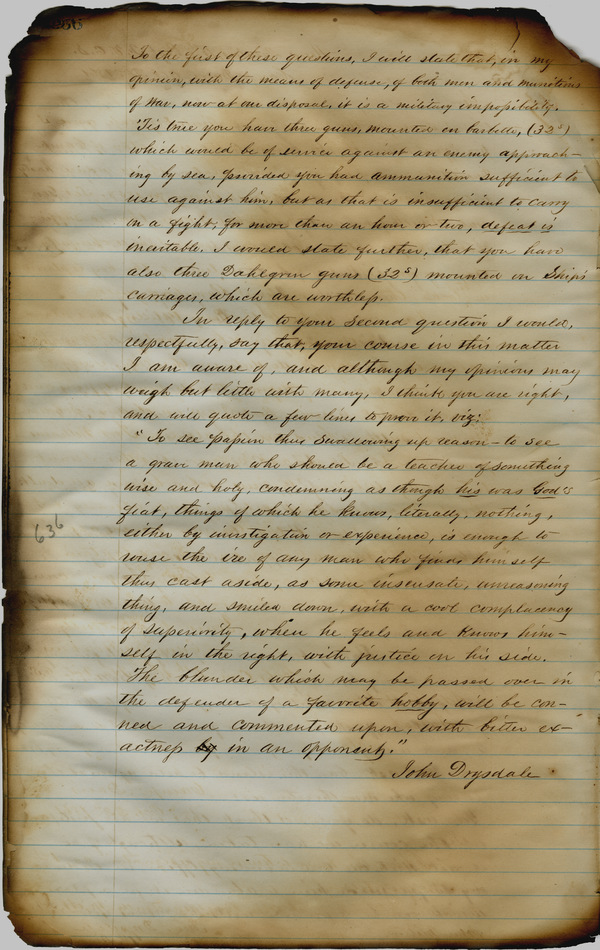 266
To the first of these questions, I will state that, in my
opinion, with the means of defense, of both men and munitions
of war, now at our disposal, it is a military impossibility.
'Tis true you have three guns, mounted en barbette, (32s)
which would be of service against an enemy approach-
ing by sea, provided you had ammunition sufficient to
use against him, but as that is insufficient to carry
on a fight, for more than an hour or two, defeat is
inevitable. I would state further, that you have
also three Dahlgren guns (32s) mounted on Ship's
carriages, which are worthless.
In reply to your Second question I would,
respectfully, say that, your course in this matter
I am aware of, and although my opinions may
weigh but little with many, I think you are right,
and will quote a few lines to prove it, viz:
"To see passion thus swallowing up reason – to see
a grave man who should be a teacher of something
wise and holy, condemning as though his was God's
fiat, things of which he knows, literally, nothing,
either by investigation or experience, is enough to
rouse the ire of any man who finds himself
thus cast aside, as some insensate, unreasoning
thing, and smiled down, with a cool complacency
of superiority, when he feels and knows him-
self in the right, with justice on his side.
The blunder which may be passed over in
the defender of a favorite hobby, will be con-
ned and commented upon, with bitter ex-
actness in an opponent."
John Drysdale
636